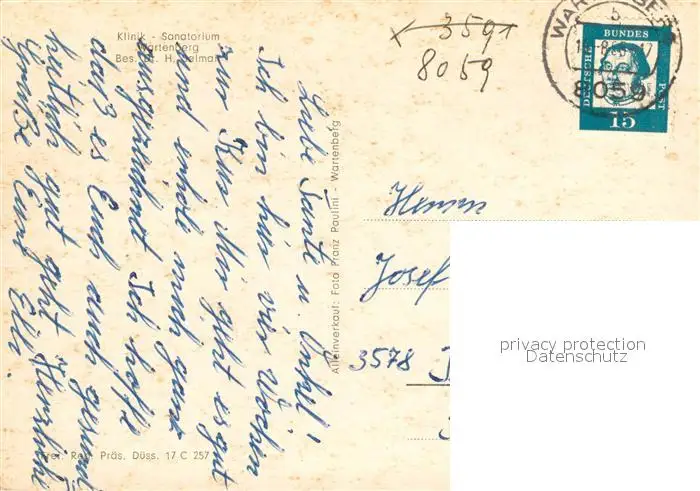 Klinik - Sanatorium
Wartenberg
Bes. Dr. H. Selmair
3591
8059
WARTENBERG
b
8059
DEUTSCHE
BUNDES
POST
15
Liebe Tante u. Onkel!
Ich bin hier vier Wochen
zur Kur. Mir geht es gut
und erhole mich ganz
ausgezeichnet. Ich hoffe
daß es Euch auch gesund-
heitlich gut geht. Herzliche
Grüße Eure Elli.
Alleinverkauf: Foto Franz Paulini, Wartenberg
Herrn
Josef
3578
Frei. Reg. Präs. Düss. 17 C 257
privacy protection
Datenschutz